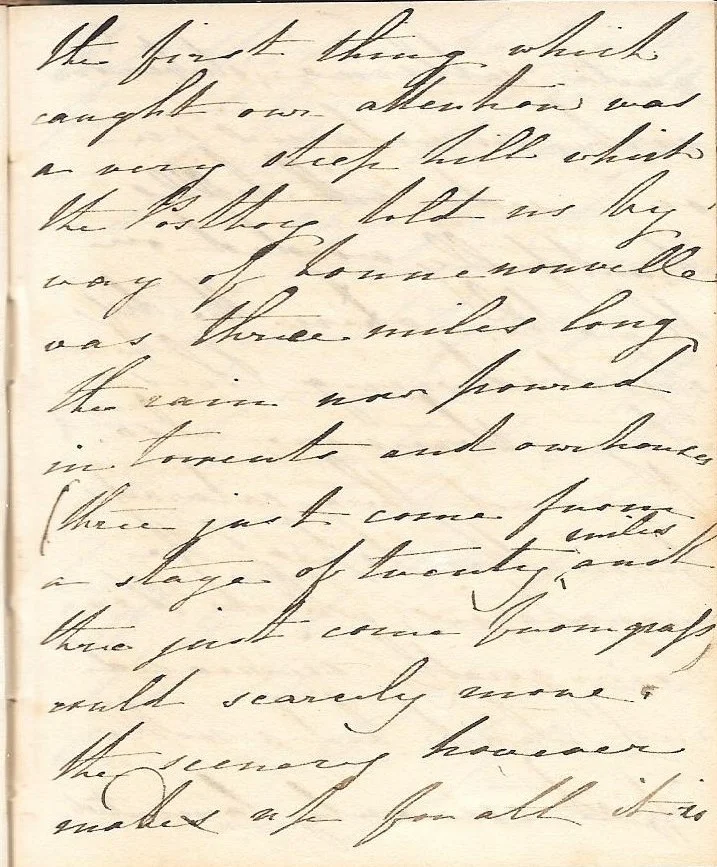 the first thing which
caught our attention was
a very steep hill which
the Postboy told us by
way of bonne nouvelle
was three miles long
the rain now poured
in torrents and our horses
(three just come from
miles
a stage of twenty, and
three just come from grass)
could scarcely move.
the scenery however
makes up for all it is